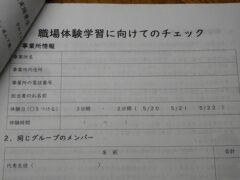 職場体験学習に向けてのチェック
事業所情報
事業所名
事業所住所
事業所の電話番号
担当者のお名前
体験日(○をつける) 3日間 ・ 2日間 ( 5/20 5/21 5/22 )
体験時間
2．同じグループのメンバー
名前
代表生徒(